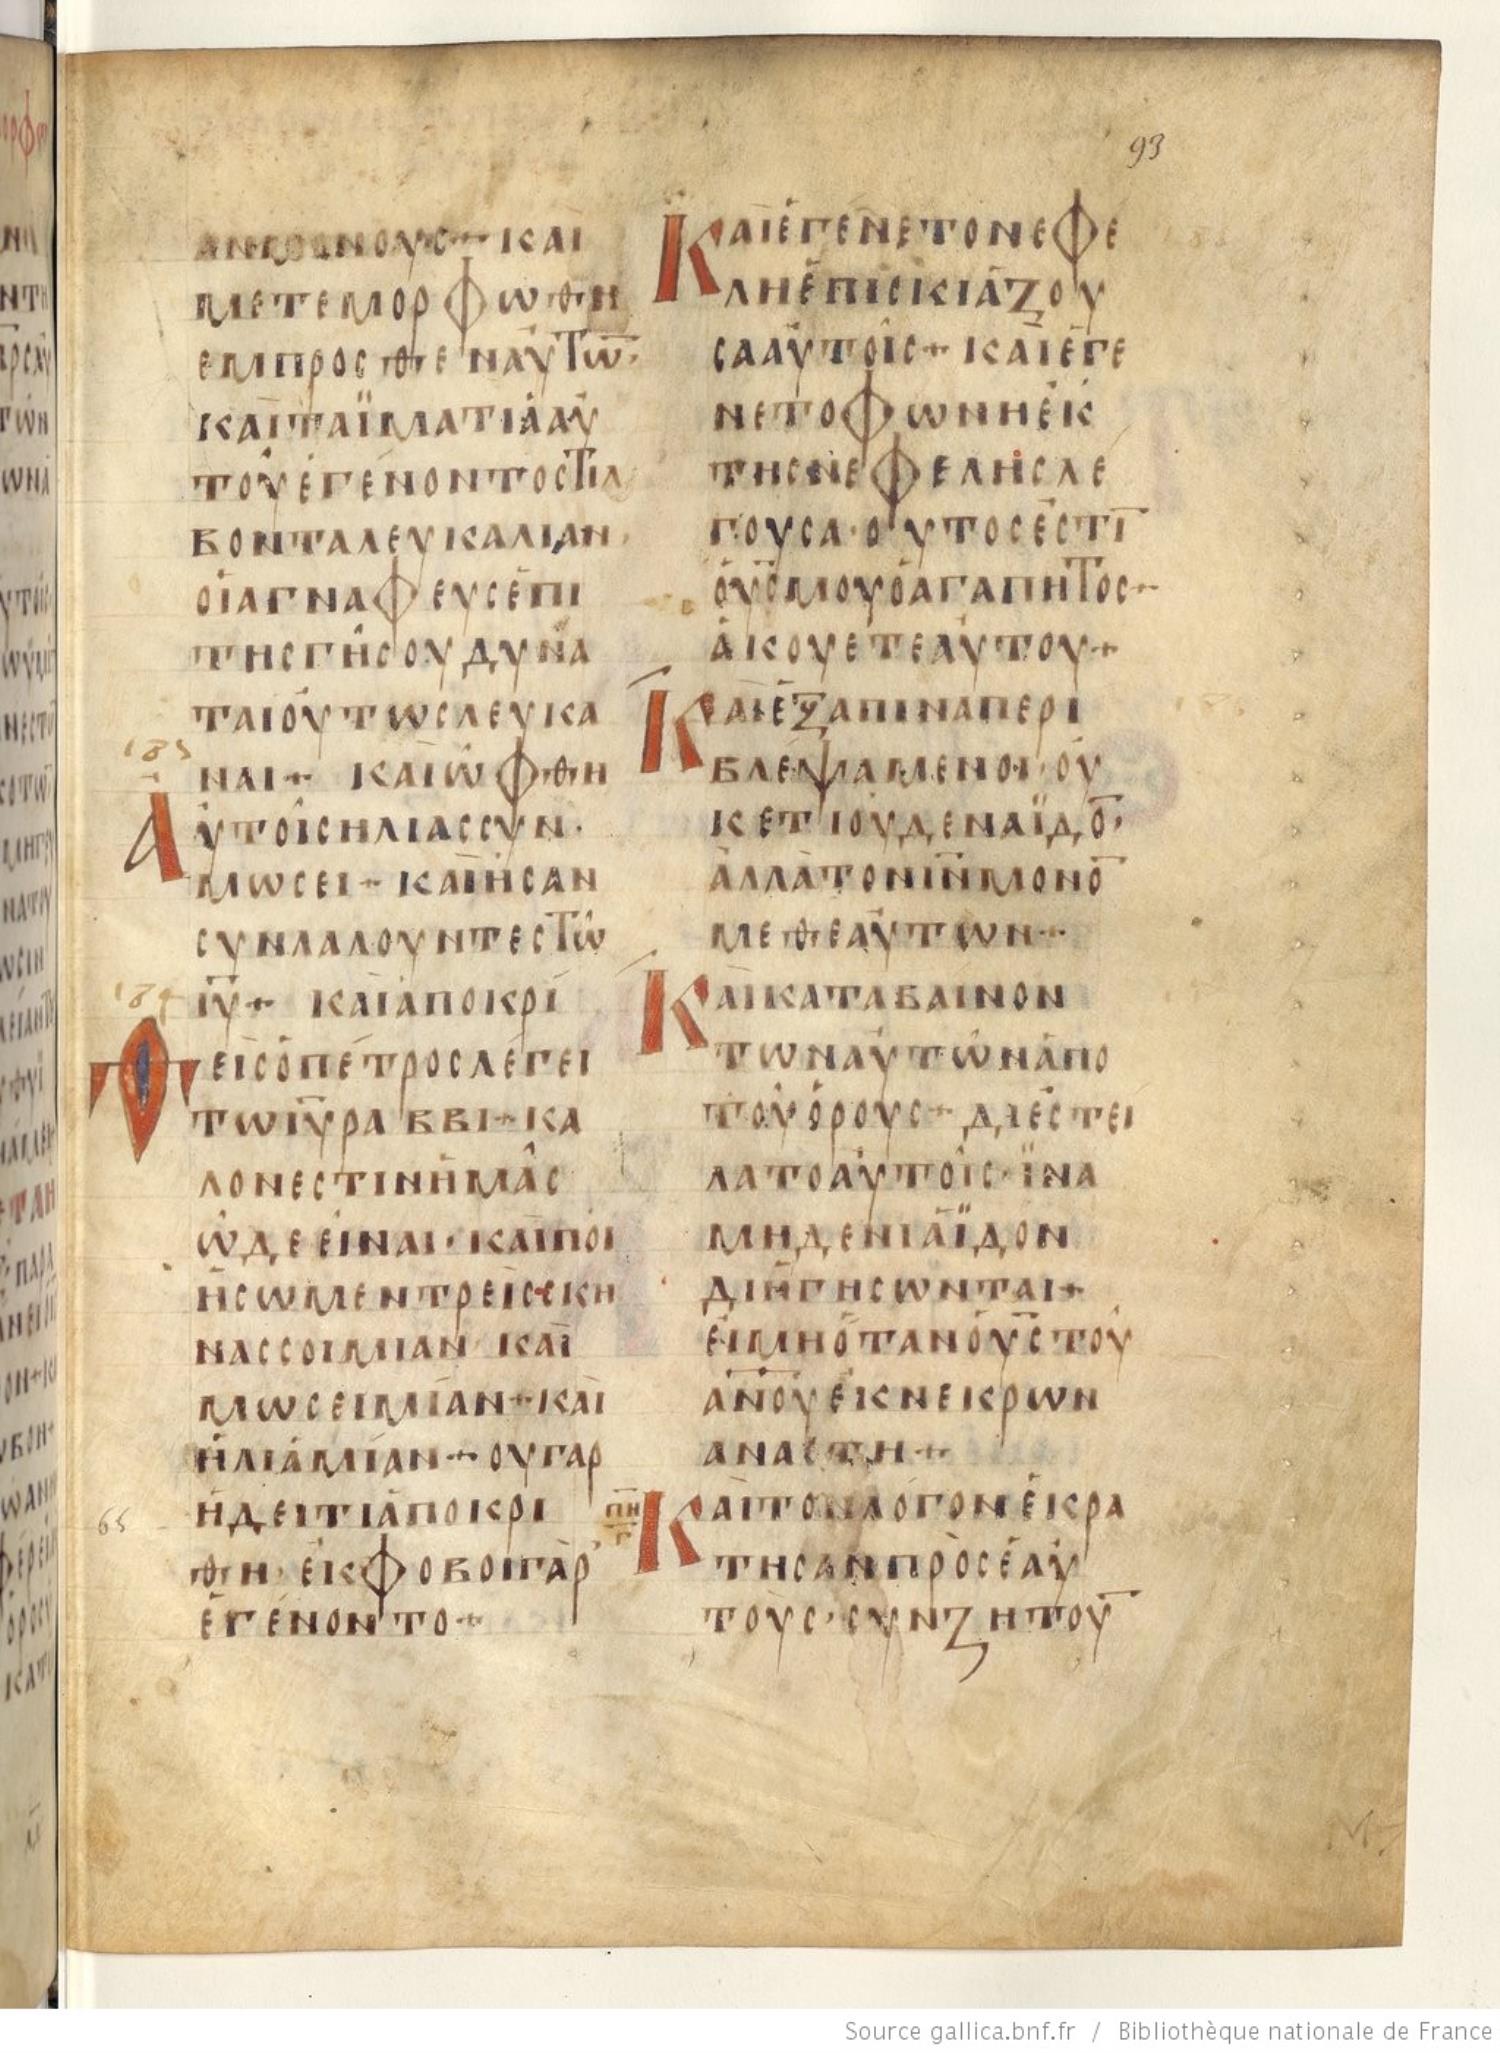 93
ΑΝΜΟΟΝΟΥΣ+ ΚΑΙ
ΜΕΤΕΜΟΡΦΩΘΗ
ΕΜΠΡΟΣΘΕΝΑΥΤΩ̅·
ΚΑΙΤΑΪΜΑΤΙΑΑΥ
ΤΟΥΕΓΕΝΟΝΤΟΣΤΙΛ
ΒΟΝΤΑΛΕΥΚΑΛΙΑΝ
ΟΙΑΓΝΑΦΕΥΣΕΠΙ
ΤΗΣΓΗΣΟΥΔΥΝΑ
ΤΑΙΟΥΤΩΣΛΕΥΚΑ
ΝΑΙ+ ΚΑΙΩΦΘΗ
ΑΥΤΟΙΣΗΛΙΑΣΣΥΝ·
ΜΩΣΕΙ+ ΚΑΙΗΣΑΝ
ΣΥΝΛΑΛΟΥΝΤΕΣΤΩ
Ι̅Υ̅+ ΚΑΙΑΠΟΚΡΙ
ΘΕΙΣΟΠΕΤΡΟΣΛΕΓΕΙ
ΤΩΙ̅Υ̅ΡΑΒΒΙ+ΚΑ
ΛΟΝΕΣΤΙΝΗΜΑΣ
ΩΔΕΕΙΝΑΙ·ΚΑΙΠΟΙ
ΗΣΩΜΕΝΤΡΕΙΣΣΚΗ
ΝΑΣΣΟΙΜΙΑΝ ΚΑΙ
ΜΩΣΕΙΜΙΑΝ+ΚΑΙ
ΗΛΙΑΜΙΑΝ+ΟΥΓΑΡ
ΗΔΕΙΤΙΑΠΟΚΡΙ
ΘΗ·ΕΚΦΟΒΟΙΓΑΡ
ΕΓΕΝΟΝΤΟ+
ΚΑΙΕΓΕΝΕΤΟΝΕΦΕ
ΛΗΕΠΙΣΚΙΑΖΟΥ
ΣΑΑΥΤΟΙΣ+ ΚΑΙΕΓΕ
ΝΕΤΟΦΩΝΗΕΚ
ΤΗΣΝΕΦΕΛΗΣΛΕ
ΓΟΥΣΑ·ΟΥΤΟΣΕΣΤΙ̅
ΟΥ̅Σ̅ΜΟΥΟΑΓΑΠΗΤΟΣ+
ΑΚΟΥΕΤΕΑΥΤΟΥ+
ΚΑΙΕΞΑΠΙΝΑΠΕΡΙ
ΒΛΕΨΑΜΕΝΟΙ·ΟΥ
ΚΕΤΙΟΥΔΕΝΑΪΔΟ̅·
ΑΛΛΑΤΟΝΙ̅Ν̅ΜΟΝΟ̅
ΜΕΘΕΑΥΤΩΝ+
ΚΑΙΚΑΤΑΒΑΙΝΟΝ
ΤΩΝΑΥΤΩΝΑΠΟ
ΤΟΥΟΡΟΥΣ+ ΔΙΕΣΤΕΙ
ΛΑΤΟΑΥΤΟΙΣ·ΪΝΑ
ΜΗΔΕΝΙΑΪΔΟΝ
ΔΙΗΓΗΣΩΝΤΑΙ+
ΕΙΜΗΟΤΑΝΟΥ̅Σ̅ΤΟΥ
Α̅Ν̅Ο̅Υ̅ΕΚΝΕΚΡΩΝ
ΑΝΑΣΤΗ+
ΚΑΙΤΟΝΛΟΓΟΝΕΚΡΑ
ΤΗΣΑΝΠΡΟΣΕΑΥ
ΤΟΥΣ·ΣΥΝΖΗΤΟΥ̅
65
Source gallica.bnf.fr / Bibliothèque nationale de France